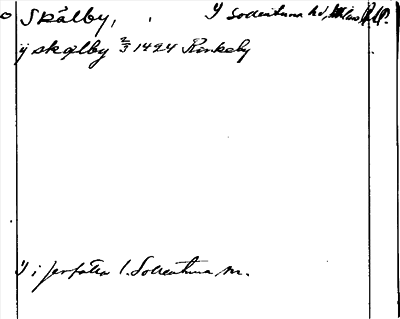 Skålby, y Sollentuna hd,
y skalby 2/3 1424 Rinkeby
y i Jerfälla l. Sollentuna sn.